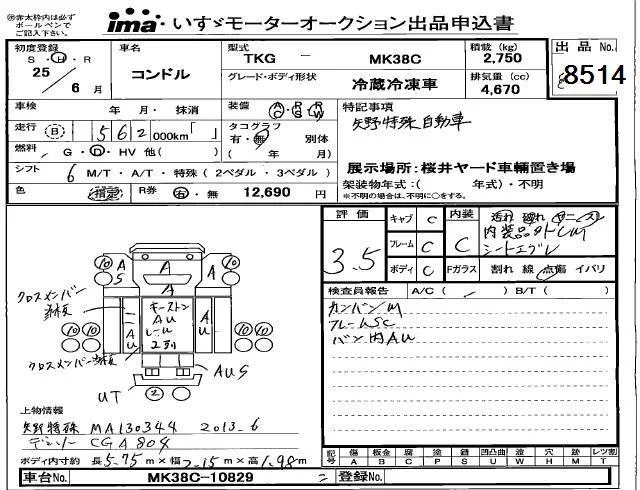 ㊟赤太枠内は必ず
ボールペンで
ご記入下さい。
ima・いすゞモーターオークション出品申込書
初度登録
S・H・R
25年
6月
車名
コンドル
型式
TKG － MK38C
グレード・ボディ形状
冷蔵冷凍車
積載 (kg)
2,750
排気量 (cc)
4,670
出品No.
8514
車検 年 月・抹消
走行 B 562000km「 」
燃料 G・D・HV 他( )
シフト 6 M/T・A/T・特殊 (2ペダル・3ペダル)
色 (指定) R券 有・無 12,690円
装備 AC PS PW
タコグラフ
有・無 別体
( 年 月)
特記事項
矢野特殊自動車
展示場所:桜井ヤード車輛置き場
架装物年式:( 年式)・不明
*不明の場合は、不明に○をする。
評価
3.5
キャブ C
フレーム C
ボディ C
内装
C
Fガラス
汚れ 破れ ヤニ(ス)
シートエグレ
割れ 線 点傷 イバリ
検査員報告 A/C ( ) B/T ( )
カンバンM
フレームSC
バン内AU
クロスメンバー
クロスメンバー
10
10
10
10
10
10
A
A
A
A
S
A
U
A
U
キーストン
AU
レール
エグレ
AUS
UT
2
上物情報
矢野特殊 MA130344 2013.6
デンソー CGA804
ボディ内寸約 長5.75m×幅2.15m×高1.98m
記号 傷 A 板金 B 腐食 C 塗装 P 錆 S 凹凸曲 U 波 W 穴 H 跡 M レツ割 T
車台No. MK38C-10829
登録No.